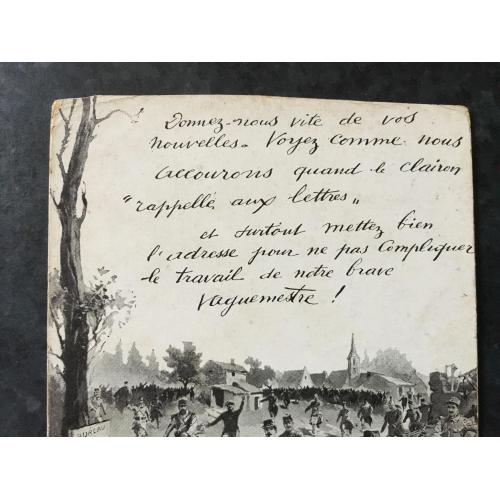 Donnez-nous vite de vos
nouvelles. Voyez comme nous
accourons quand le clairon
"rappelle aux lettres"
et surtout mettez bien
l'adresse pour ne pas compliquer
le travail de notre brave
Vaguemestre !
BUREAU